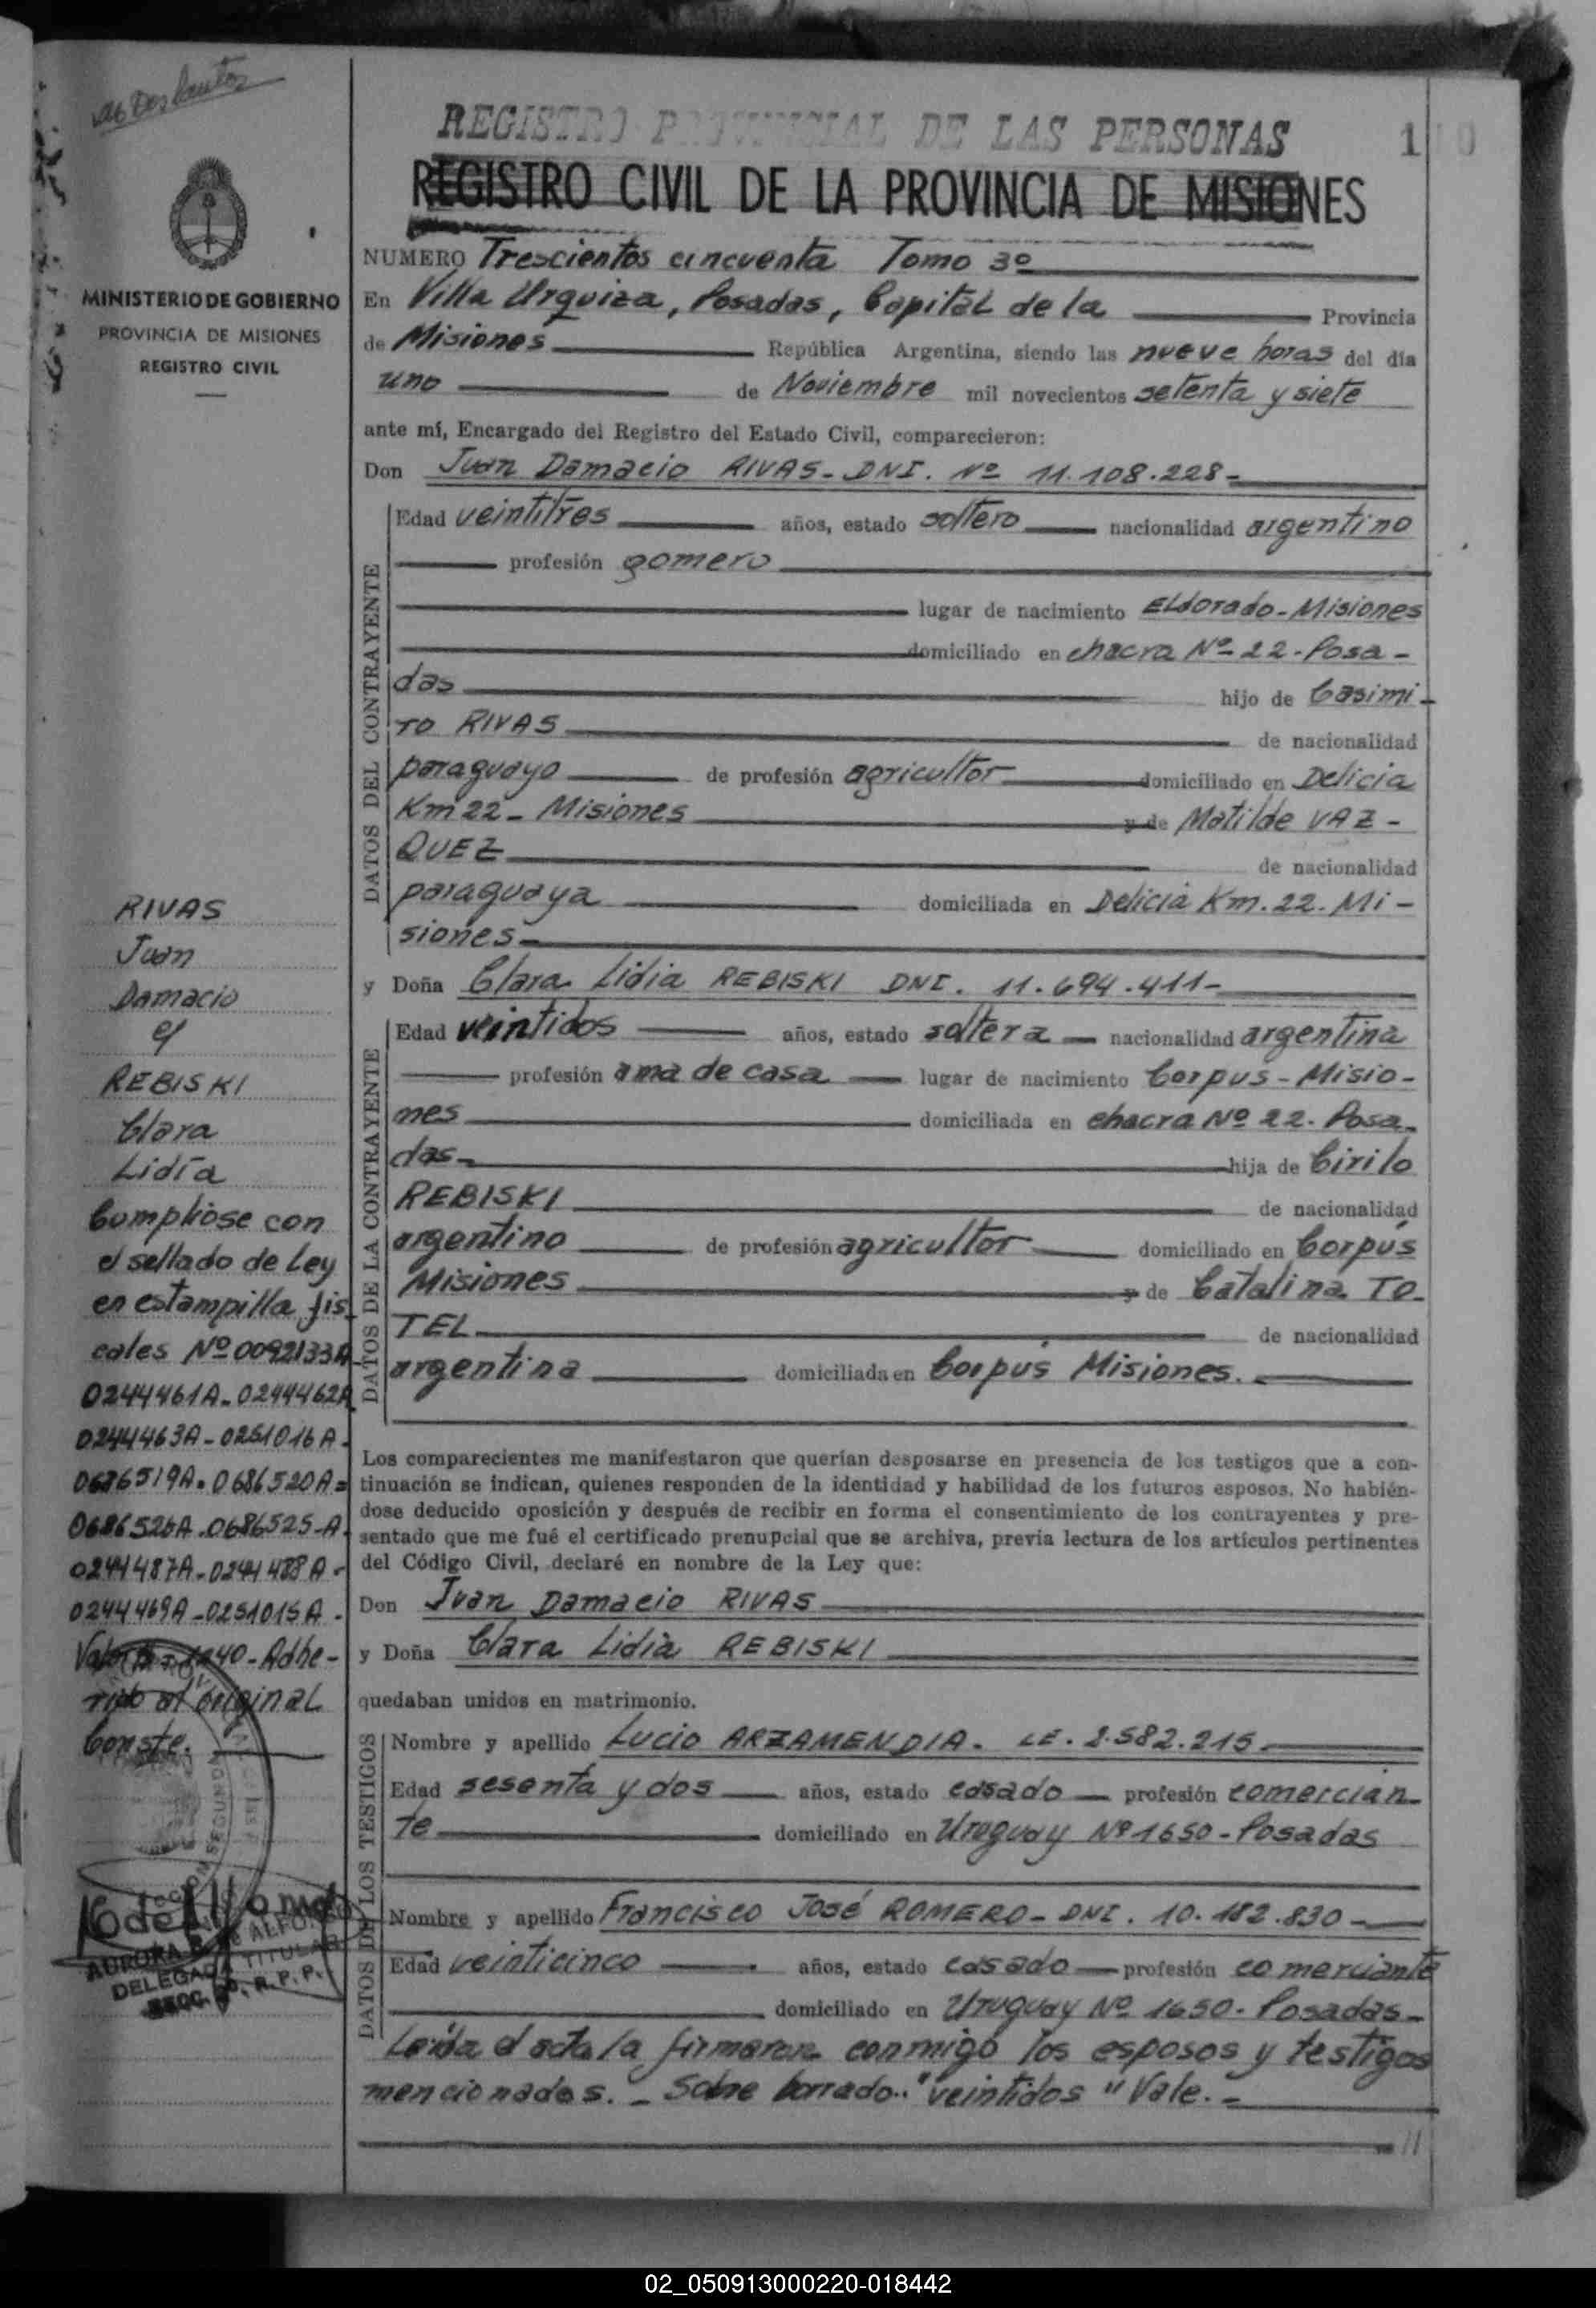 REGISTRO PROVINCIAL DE LAS PERSONAS
REGISTRO CIVIL DE LA PROVINCIA DE MISIONES
MINISTERIO DE GOBIERNO
PROVINCIA DE MISIONES
REGISTRO CIVIL
NUMERO Trescientos cincuenta Tomo 3º
En Villa Urquiza, Posadas, Capital de la Provincia
de Misiones República Argentina, siendo las nueve horas del día
uno de Noviembre mil novecientos setenta y siete
ante mí, Encargado del Registro del Estado Civil, comparecieron:
Don Juan Damacio RIVAS - DNI. Nº 11.108.228-
DATOS DEL CONTRAYENTE
Edad veintitres años, estado soltero nacionalidad argentino
profesión gomero
lugar de nacimiento Eldorado - Misiones
domiciliado en chacra Nº 22 - Posa-
das hijo de Casimi-
ro RIVAS de nacionalidad
paraguayo de profesión agricultor domiciliado en Delicia
Km 22 - Misiones y de Matilde VAZ-
QUEZ de nacionalidad
paraguaya domiciliada en Delicia Km. 22. Mi-
siones -
y Doña Clara Lidia REBISKI DNI. 11.694.411-
DATOS DE LA CONTRAYENTE
Edad veintidos años, estado soltera nacionalidad argentina
profesión ama de casa lugar de nacimiento Corpus - Misio-
nes domiciliada en chacra Nº 22. Posa-
das- hija de Cirilo
REBISKI de nacionalidad
argentino de profesión agricultor domiciliado en Corpus
Misiones y de Catalina TO-
TEL de nacionalidad
argentina domiciliada en Corpus Misiones.
Los comparecientes me manifestaron que querían desposarse en presencia de los testigos que a con-
tinuación se indican, quienes responden de la identidad y habilidad de los futuros esposos. No habién-
dose deducido oposición y después de recibir en forma el consentimiento de los contrayentes y pre-
sentado que me fué el certificado prenupcial que se archiva, previa lectura de los artículos pertinentes
del Código Civil, declaré en nombre de la Ley que:
Don Juan Damacio RIVAS
y Doña Clara Lidia REBISKI
quedaban unidos en matrimonio.
DATOS DE LOS TESTIGOS
Nombre y apellido Lucio ARZAMENDIA. LE. 2.582.215.
Edad sesenta y dos años, estado casado profesión comercian-
te domiciliado en Uruguay Nº 1650 - Posadas
Nombre y apellido Francisco José ROMERO - DNI. 10.182.830 -
Edad veinticinco años, estado casado profesión comerciante
domiciliado en Uruguay Nº 1650 - Posadas -
Leída el acta la firmaron conmigo los esposos y testigos
mencionados. - Sobre borrado: "veintidos" Vale. -
//
RIVAS
Juan
Damacio
y
REBISKI
Clara
Lidía
Cumplióse con
el sellado de Ley
en estampilla fis
cales Nº 0092133A
0244461A - 0244462A
0244463A - 0251016A -
0686519A - 0686520A =
0686526A - 0686525-A
0244487A - 0244488A -
0244469A - 0251015A -
1040 - Adhe-
rido al original
Conste.
AURORA DE ALFONSO
DELEGADA TITULAR
R. P. P.
02_050913000220-018442